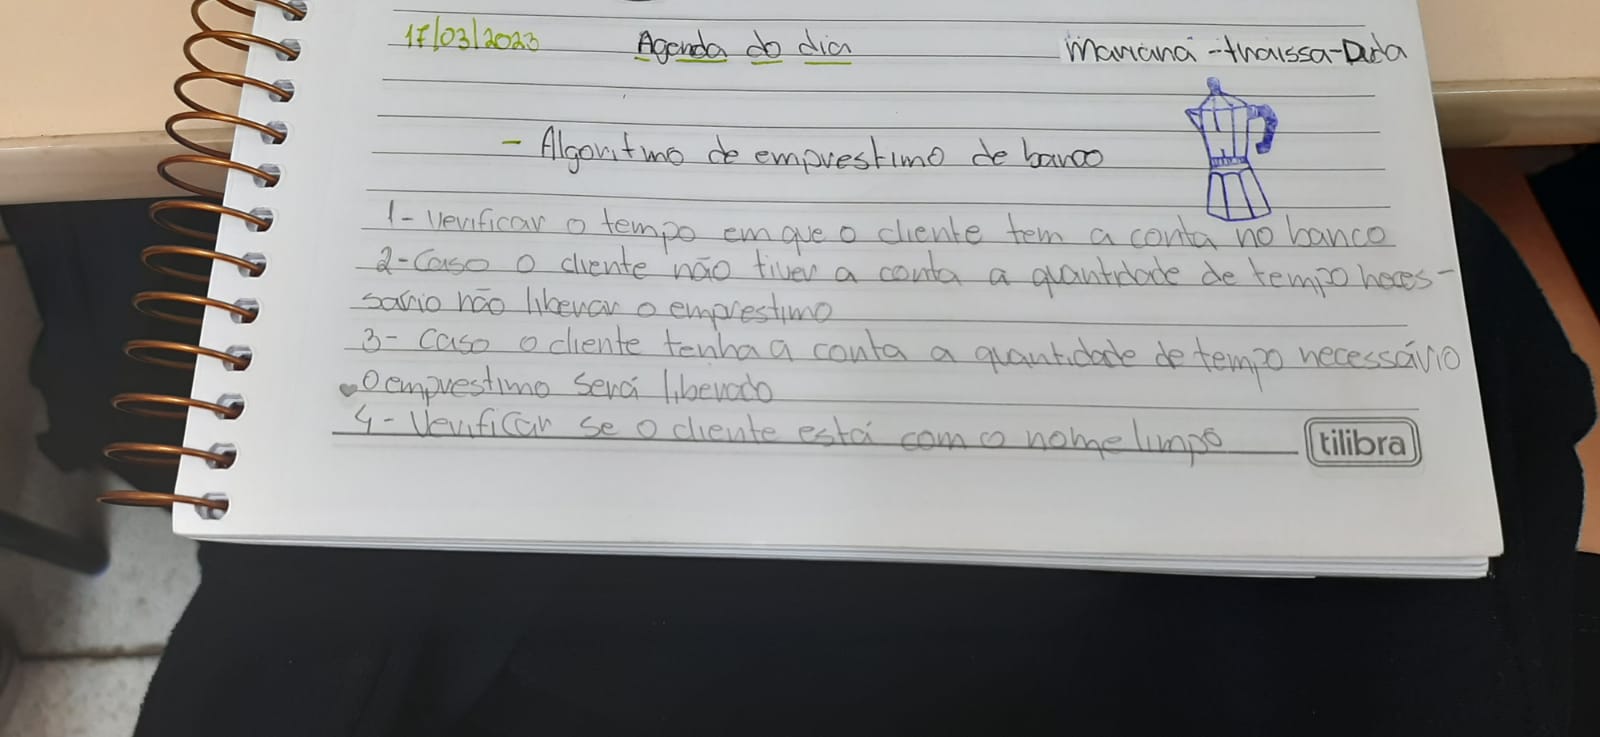 17/03/2023 Agenda do dia Mariana - thaissa - Duda
- Algoritmo de emprestimo de banco
1- Verificar o tempo em que o cliente tem a conta no banco
2- Caso o cliente não tiver a conta a quantidade de tempo neces-
sario não liberar o emprestimo
3- Caso o cliente tenha a conta a quantidade de tempo necessário
o emprestimo será liberado
4- Verificar se o cliente está com o nome limpo
tilibra